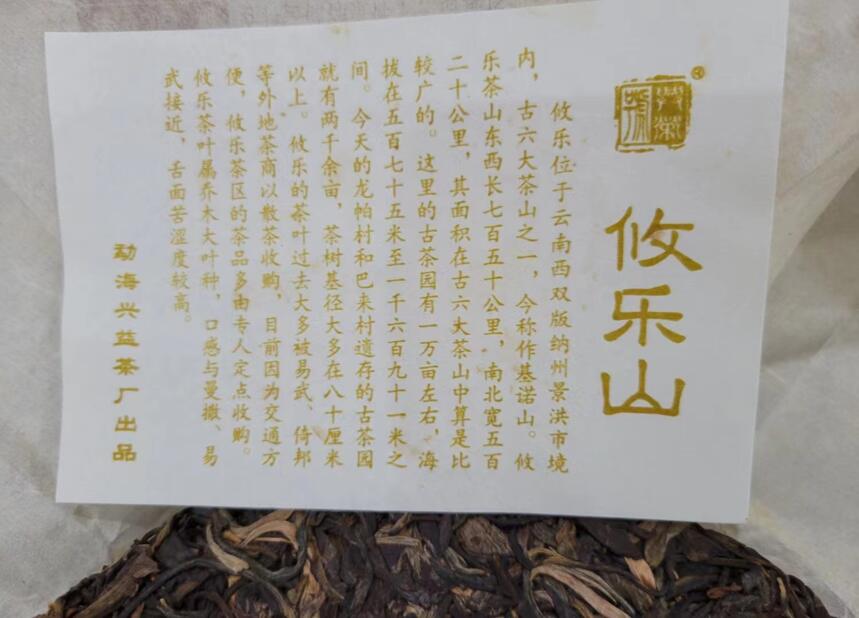 攸乐山
攸乐位于云南西双版纳州景洪市境
内，古六大茶山之一，今称作基诺山。攸
乐茶山东西长七百五十公里，南北宽五百
二十公里，其面积在古六大茶山中算是比
较广的。这里的古茶园有一万亩左右，海
拔在五百七十五米至一千六百九十一米之
间。今天的龙帕村和巴来村遗存的古茶园
就有两千余亩，茶树基径大多在八十厘米
以上。攸乐的茶叶过去大多被易武、倚邦
等外地茶商以散茶收购，目前因为交通方
便，攸乐茶区的茶品多由专人定点收购。
攸乐茶叶属乔木大叶种，口感与曼撒、易
武接近，舌面苦涩度较高。
勐海兴益茶厂出品